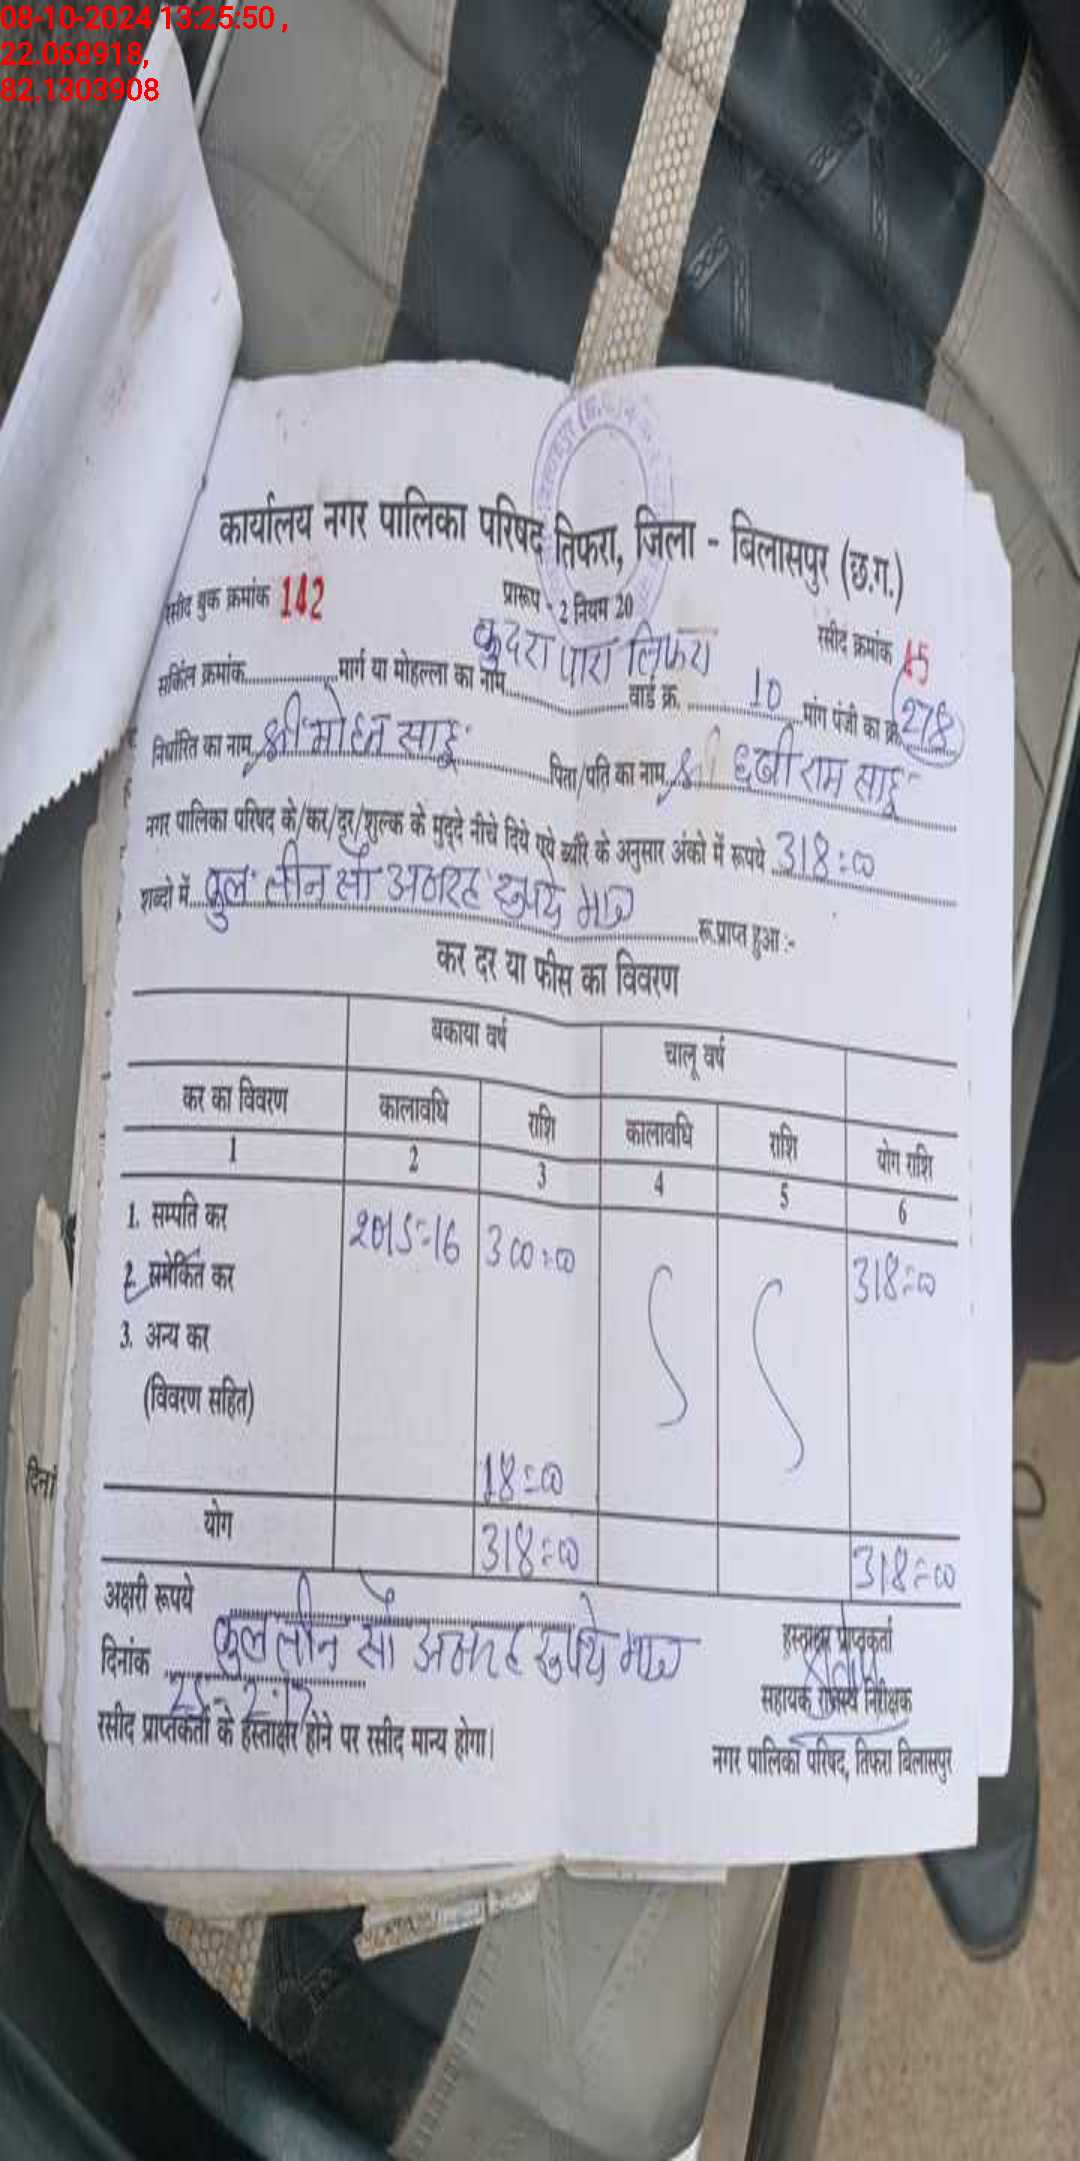 08-10-2024 13:25:50 ,
22.068918,
82.1303908
कार्यालय नगर पालिका परिषद तिफरा, जिला - बिलासपुर (छ.ग.)
रसीद बुक क्रमांक 142 प्रारूप - 2 नियम 20 रसीद क्रमांक 15
सर्किल क्रमांक मार्ग या मोहल्ला का नाम कुदरा पारा तिफरा वार्ड क्र. 10 मांग पंजी का क्र. 278
निर्धारित का नाम श्री मोहन साहू पिता/पति का नाम श्री छबी राम साहू
नगर पालिका परिषद के/कर/दर/शुल्क के मुद्दे नीचे दिये गये ब्यौरे के अनुसार अंको में रूपये 318=00
शब्दो में कुल तीन सौ अठारह रुपये मात्र रू.प्राप्त हुआ :-
कर दर या फीस का विवरण
बकाया वर्ष चालू वर्ष
कर का विवरण कालावधि राशि कालावधि राशि योग राशि
1 2 3 4 5 6
1. सम्पति कर 2015-16 300=00 318=00
2. समेकित कर
3. अन्य कर
(विवरण सहित)
18=00
योग 318=00 318=00
अक्षरी रूपये कुल तीन सौ अठारह रुपये मात्र
दिनांक हस्ताक्षर प्राप्तकर्ता
सहायक राजस्व निरीक्षक
रसीद प्राप्तकर्ता के हस्ताक्षर होने पर रसीद मान्य होगा।
नगर पालिका परिषद, तिफरा बिलासपुर